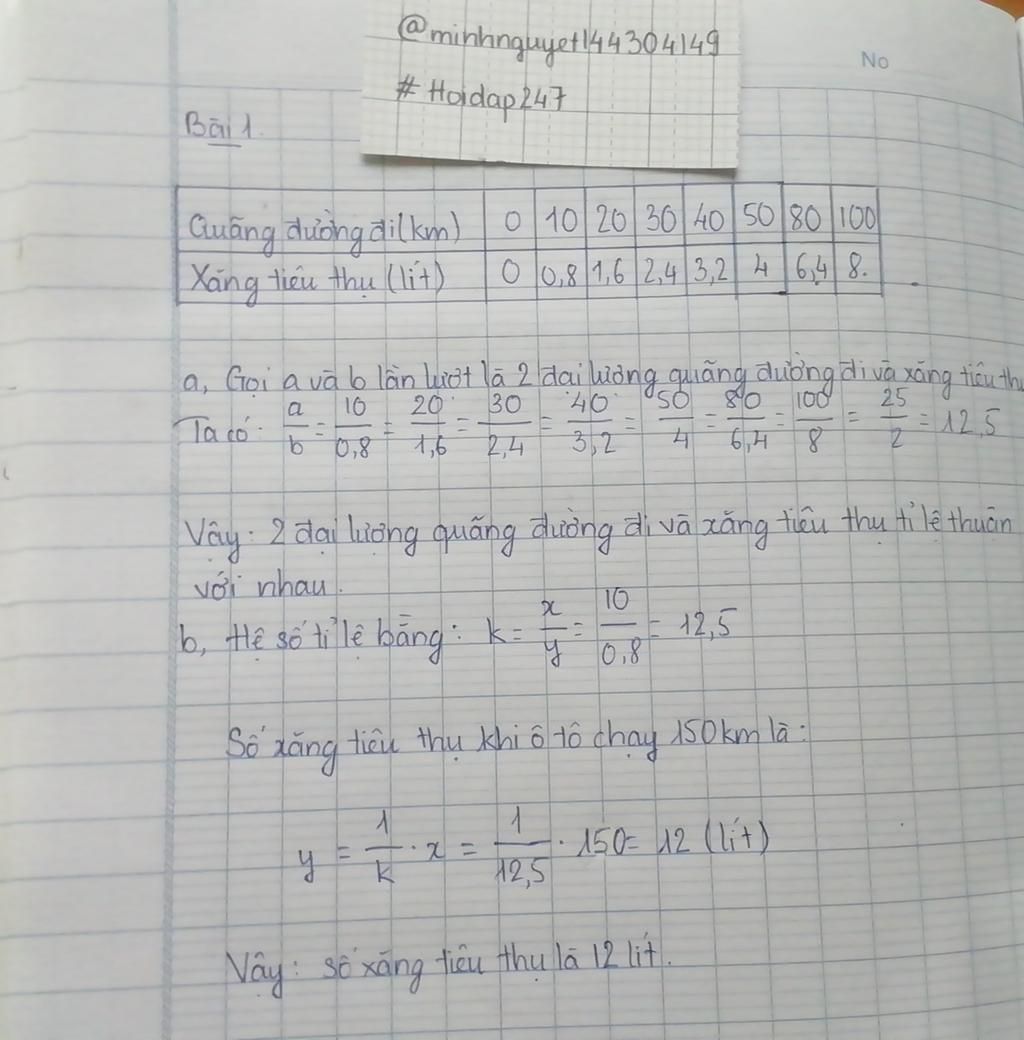 @minhnguyet144304149
# Hoidap247
No
Bài 1.
Quãng đường đi (km) 0 10 20 30 40 50 80 100
Xăng tiêu thụ (lít) 0 0,8 1,6 2,4 3,2 4 6,4 8.
a, Gọi a và b lần lượt là 2 đại lượng quãng đường đi và xăng tiêu th
Ta có: a/b = 10/0,8 = 20/1,6 = 30/2,4 = 40/3,2 = 50/4 = 80/6,4 = 100/8 = 25/2 = 12,5
Vậy: 2 đại lượng quãng đường đi và xăng tiêu thụ tỉ lệ thuận
với nhau.
b, Hệ số tỉ lệ bằng: k = x/y = 10/0,8 = 12,5
Số xăng tiêu thụ khi ô tô chạy 150km là:
y = 1/k . x = 1/12,5 . 150 = 12 (lít)
Vậy: số xăng tiêu thụ là 12 lít.